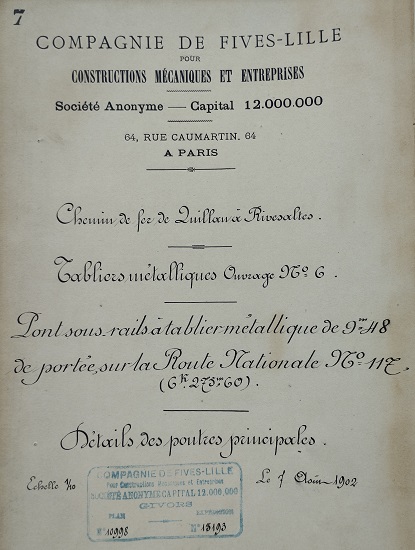 7
COMPAGNIE DE FIVES-LILLE
POUR
CONSTRUCTIONS MÉCANIQUES ET ENTREPRISES
Société Anonyme — Capital 12.000.000
64, RUE CAUMARTIN, 64
A PARIS
Chemin de fer de Quillan à Rivesaltes.
Tabliers métalliques Ouvrage Nº 6.
Pont sous rails à tablier métallique de 9m48
de portée, sur la Route Nationale Nº 117,
(6k.275m60).
Détails des poutres principales.
Echelle 1/10
Le 7 Août 1902
COMPAGNIE DE FIVES-LILLE
Pour Constructions Mécaniques et Entreprises
SOCIÉTÉ ANONYME CAPITAL 12.000.000
GIVORS
PLAN
Nº 10998
Nº 13193